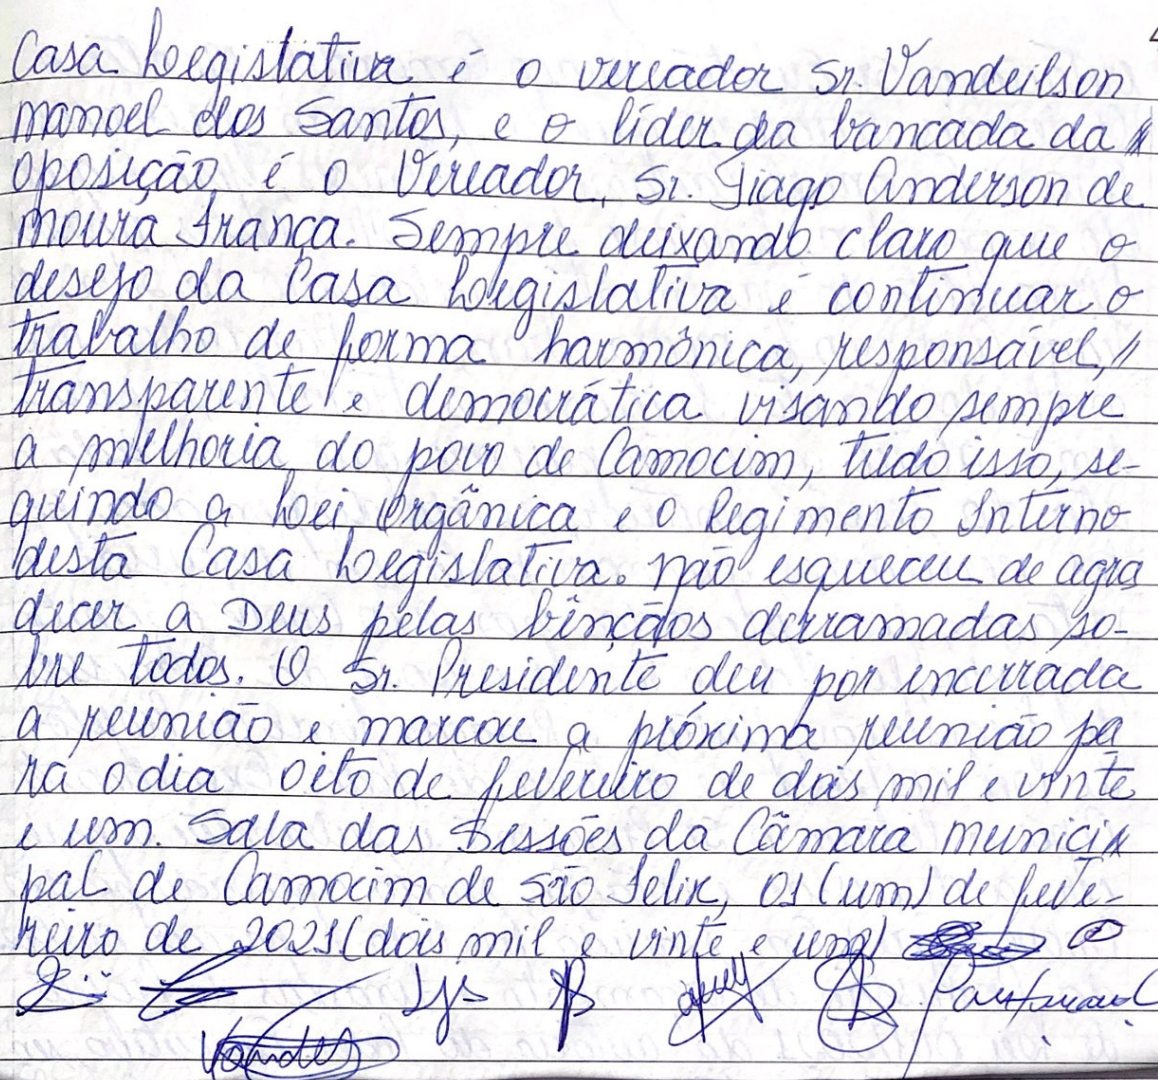 Casa Legislativa, é o vereador Sr. Vandeilson
manoel dos Santos, e o líder da bancada da //
oposição, é o Vereador, Sr. Tiago Anderson de
moura França. Sempre deixando claro que o
desejo da Casa Legislativa é continuar o
trabalho de forma harmônica, responsável, //
transparente e democrática visando sempre
a melhoria do povo de Camocim, tudo isso, se-
guindo a Lei Orgânica e o Regimento Interno
desta Casa Legislativa. não esqueceu de agra
decer a Deus pelas bênçãos derramadas so-
bre todos. O Sr. Presidente deu por encerrada
a reunião e marcou a próxima reunião pa
ra o dia oito de fevereiro de dois mil e vinte
e um. Sala das Sessões da Câmara munici
pal de Camocim de São Felix, 01 (um) de feve-
reiro de 2021 (dois mil e vinte e um)